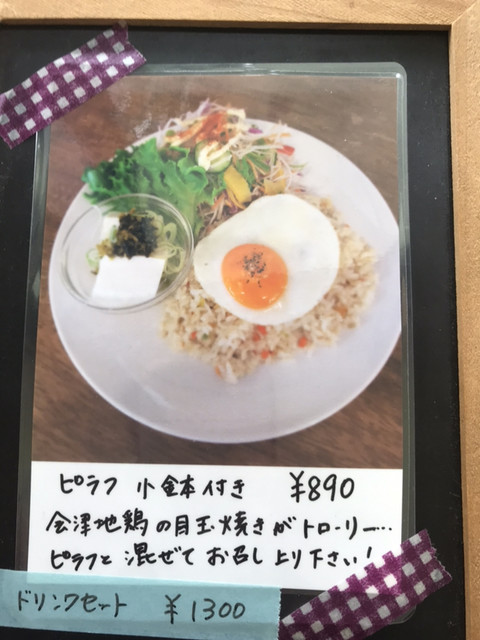 ピラフ 小鉢付き ¥890
会津地鶏の目玉焼きがトローリー…
ピラフと混ぜてお召し上り下さい!
ドリンクセット ¥1300